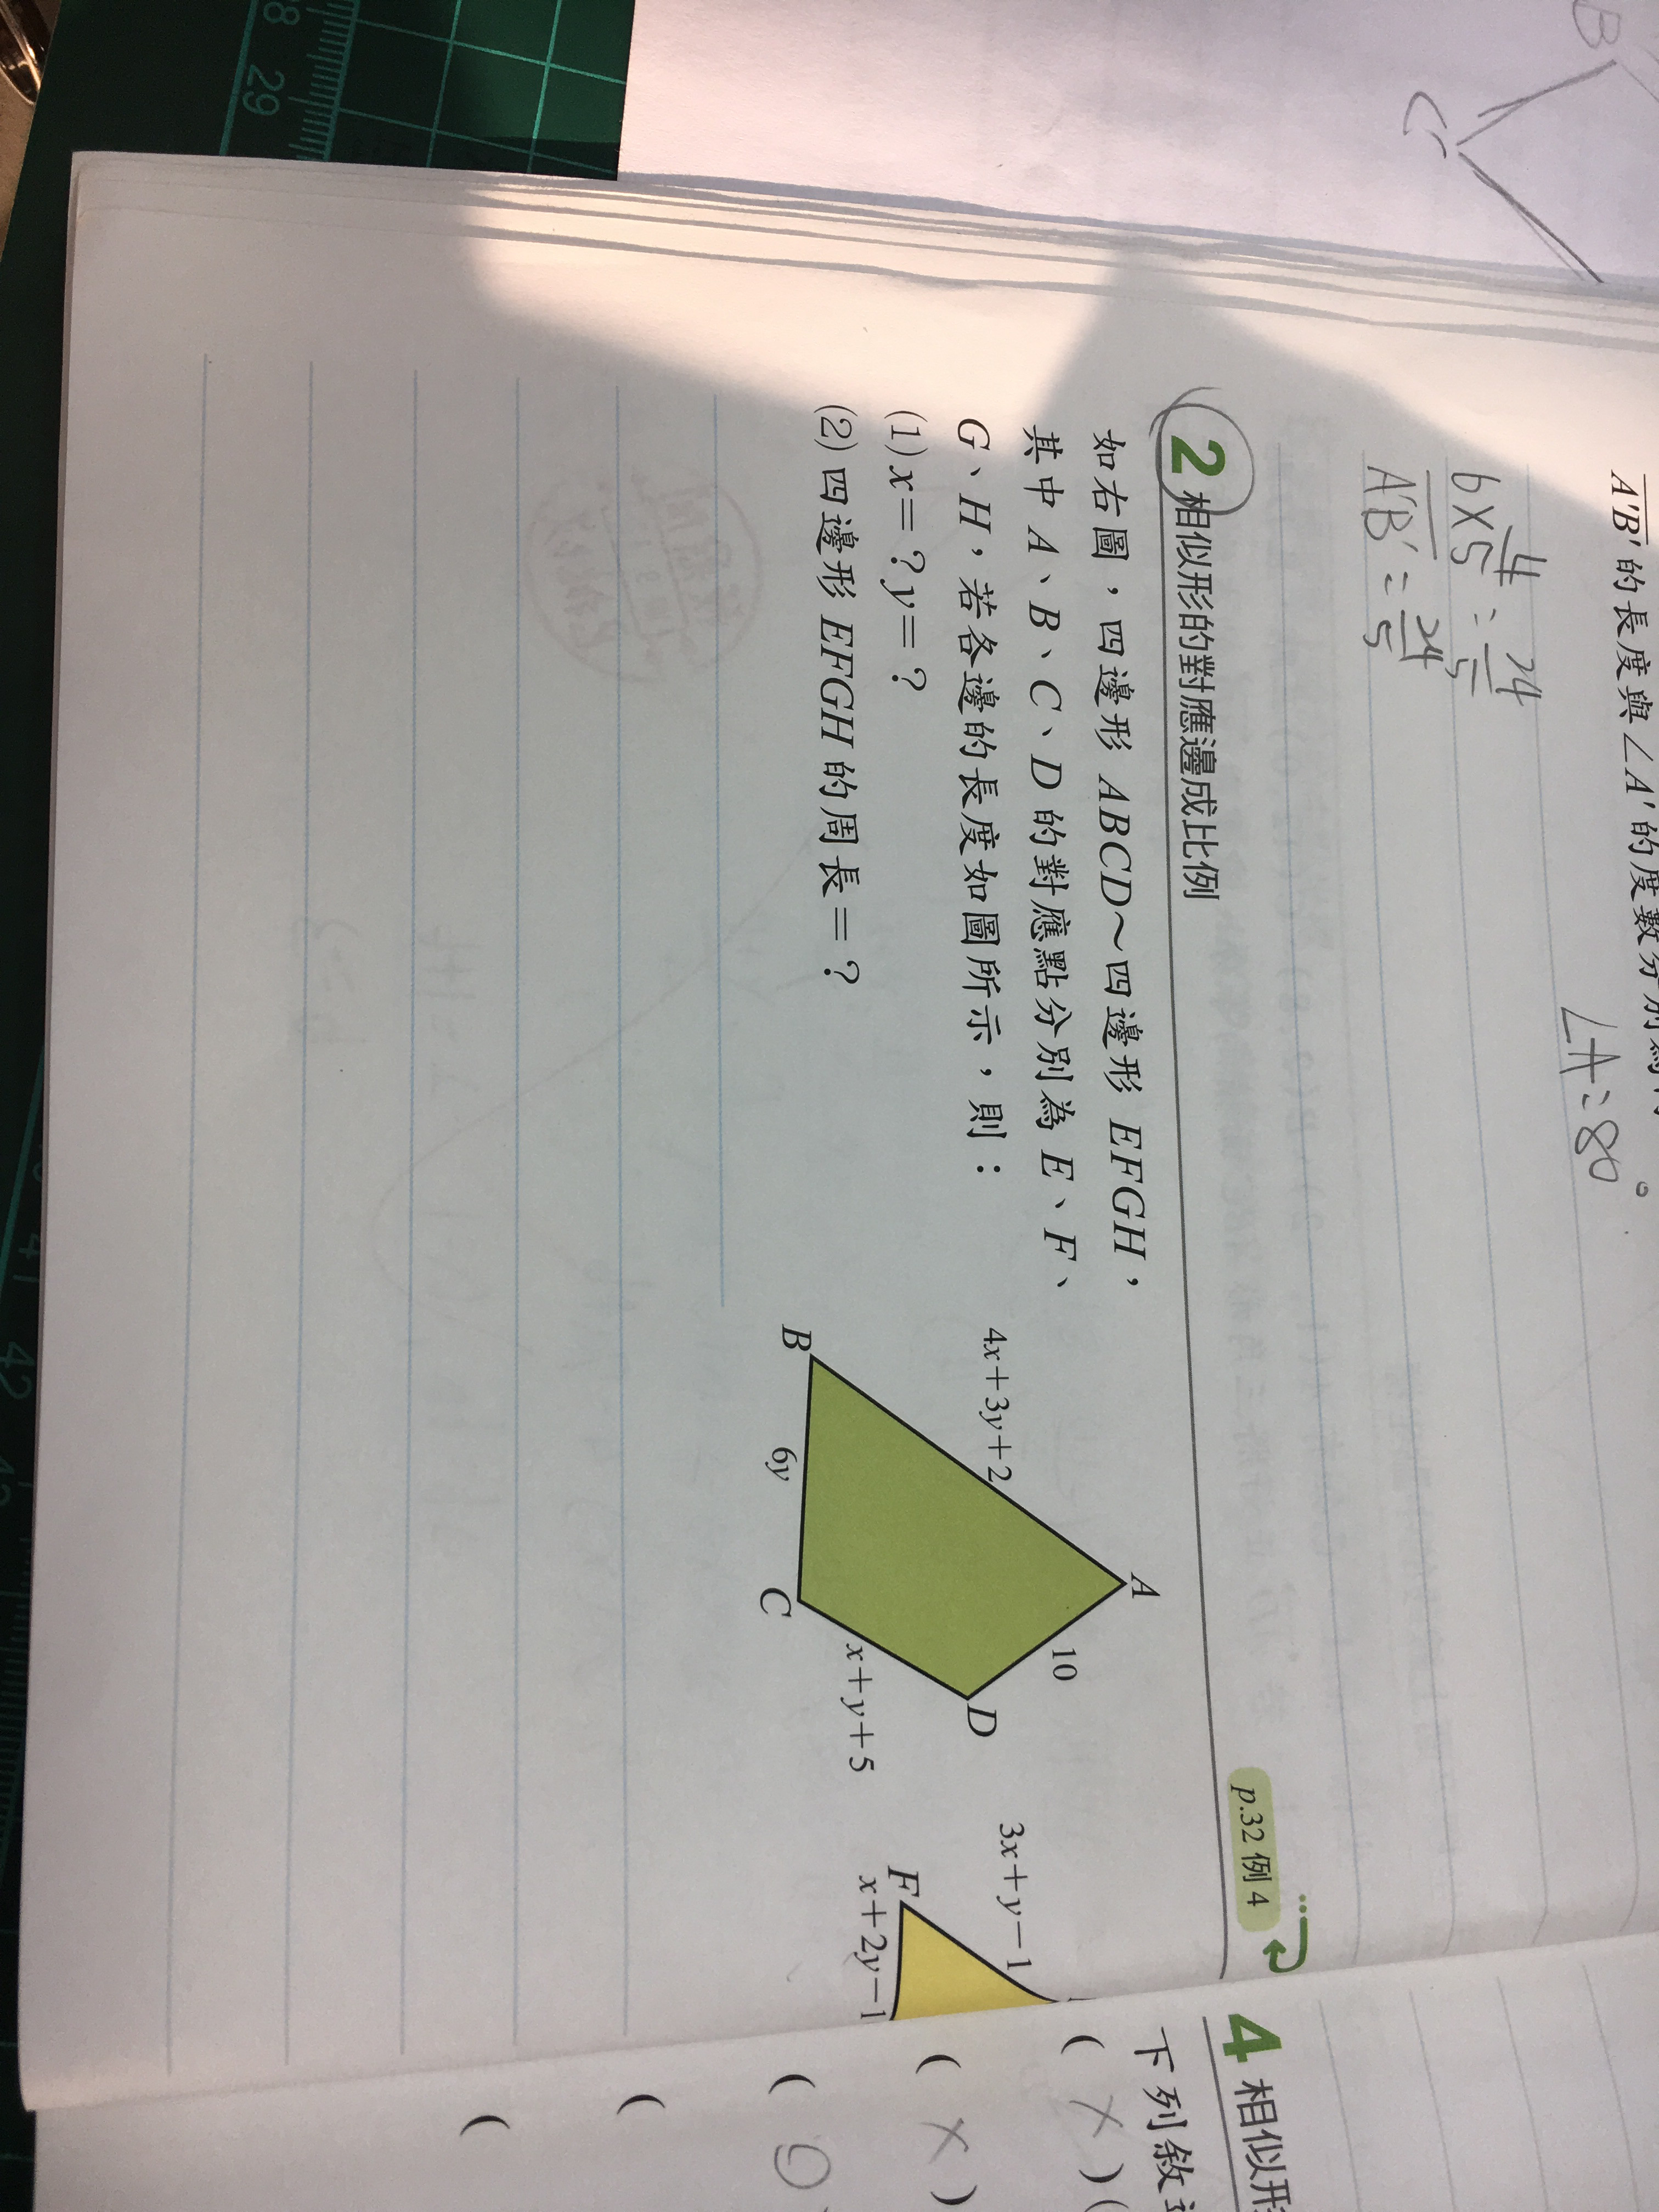 A'B'的長度與∠A'的度數分別為
∠A=80°
6×4/5=24/5
A'B'=24/5
B
C
2 相似形的對應邊成比例
p.32 例 4
如右圖，四邊形 ABCD～四邊形 EFGH，
其中 A、B、C、D 的對應點分別為 E、F、
G、H，若各邊的長度如圖所示，則：
(1) x=？y=？
(2) 四邊形 EFGH 的周長=？
A
4x+3y+2
10
D
B
6y
C
x+y+5
3x+y-1
F
x+2y-1
4 相似形
下列敘
( × ) (
( × )
( ○
(
(
28 29
41 42